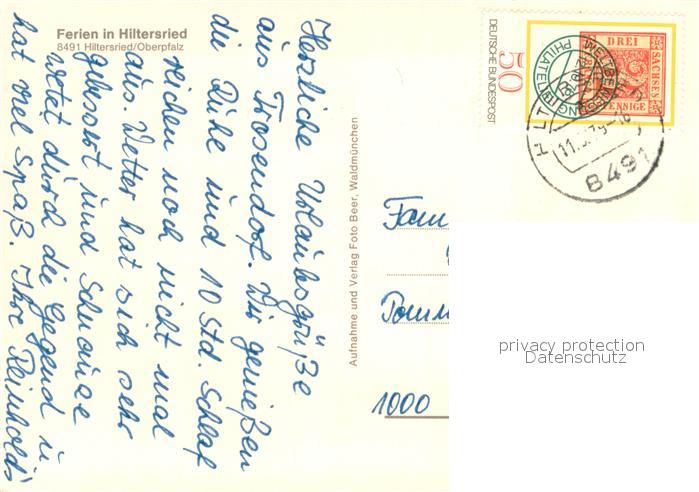 Ferien in Hiltersried
8491 Hiltersried/Oberpfalz
Herzliche Urlaubsgrüße
aus Trosendorf. Wir genießen
die Ruhe und 10 Std. Schlaf
reichen noch nicht mal
aus. Wetter hat sich sehr
gebessert und Schnauze
wetet durch die Gegend u.
hat viel Spaß. Ihre Reinholds
Aufnahme und Verlag Foto Beer, Waldmünchen
DEUTSCHE BUNDESPOST
50
DREI
SACHSEN
PFENNIGE
PHILATELIE
8491
Fam
Pomm
1000
privacy protection
Datenschutz